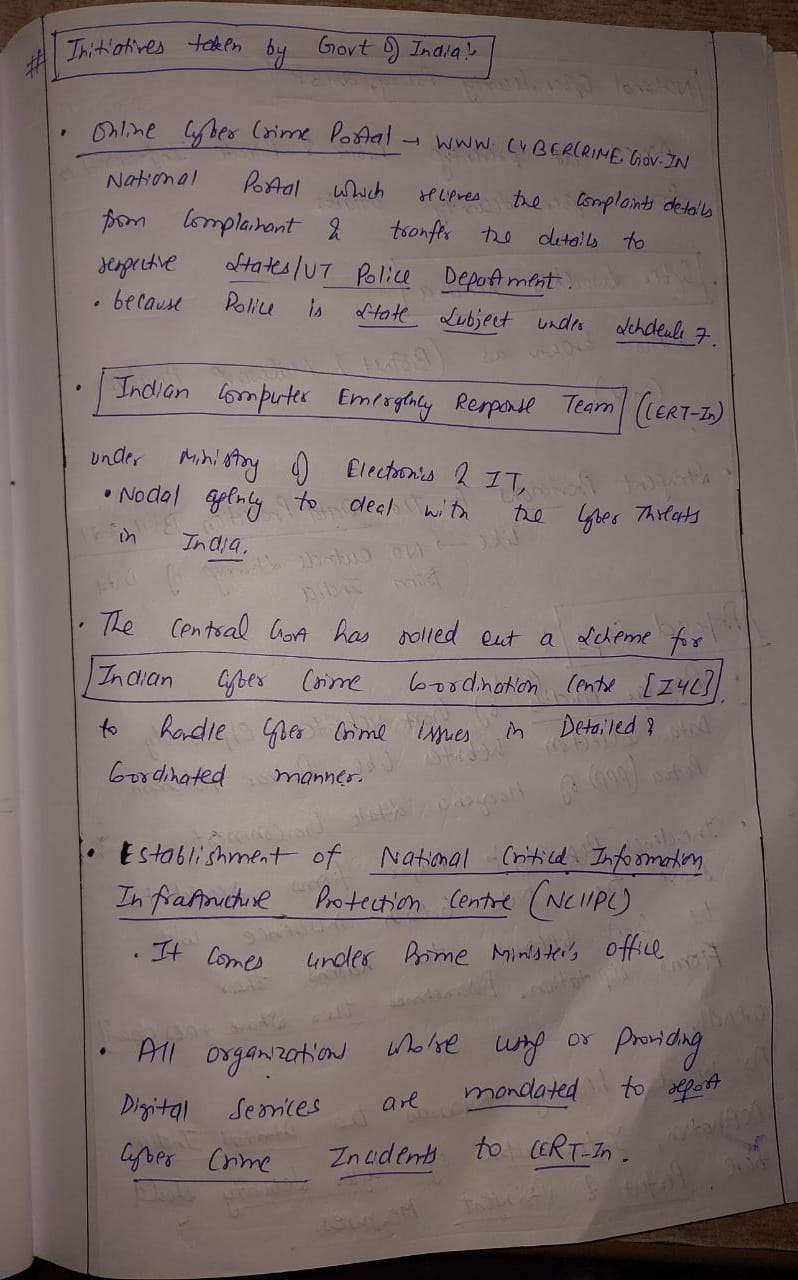 # Initiatives taken by Govt of India:
• Online Cyber Crime Portal → WWW. CYBERCRIME. GOV. IN
National Portal which recieves the complaints details
from Complainant & tranfer the details to
respective States/UT Police Department.
• because Police is State Subject under Schdeule 7.
• Indian Computer Emergency Response Team (CERT-In)
under Ministry of Electronics & IT,
• Nodal agency to deal with the Cyber Threats
in India.
• The Central Govt has rolled out a Scheme for
Indian Cyber Crime Coordination Centre [I4C].
to handle Cyber Crime Issues in Detailed &
Coordinated manner.
• Establishment of National Critical Information
Infrastructure Protection Centre (NCIIPC)
• It Comes under Prime Minister's office
• All organizations who're using or Providing
Digital Services are mandated to report
Cyber Crime Incidents to CERT-In.